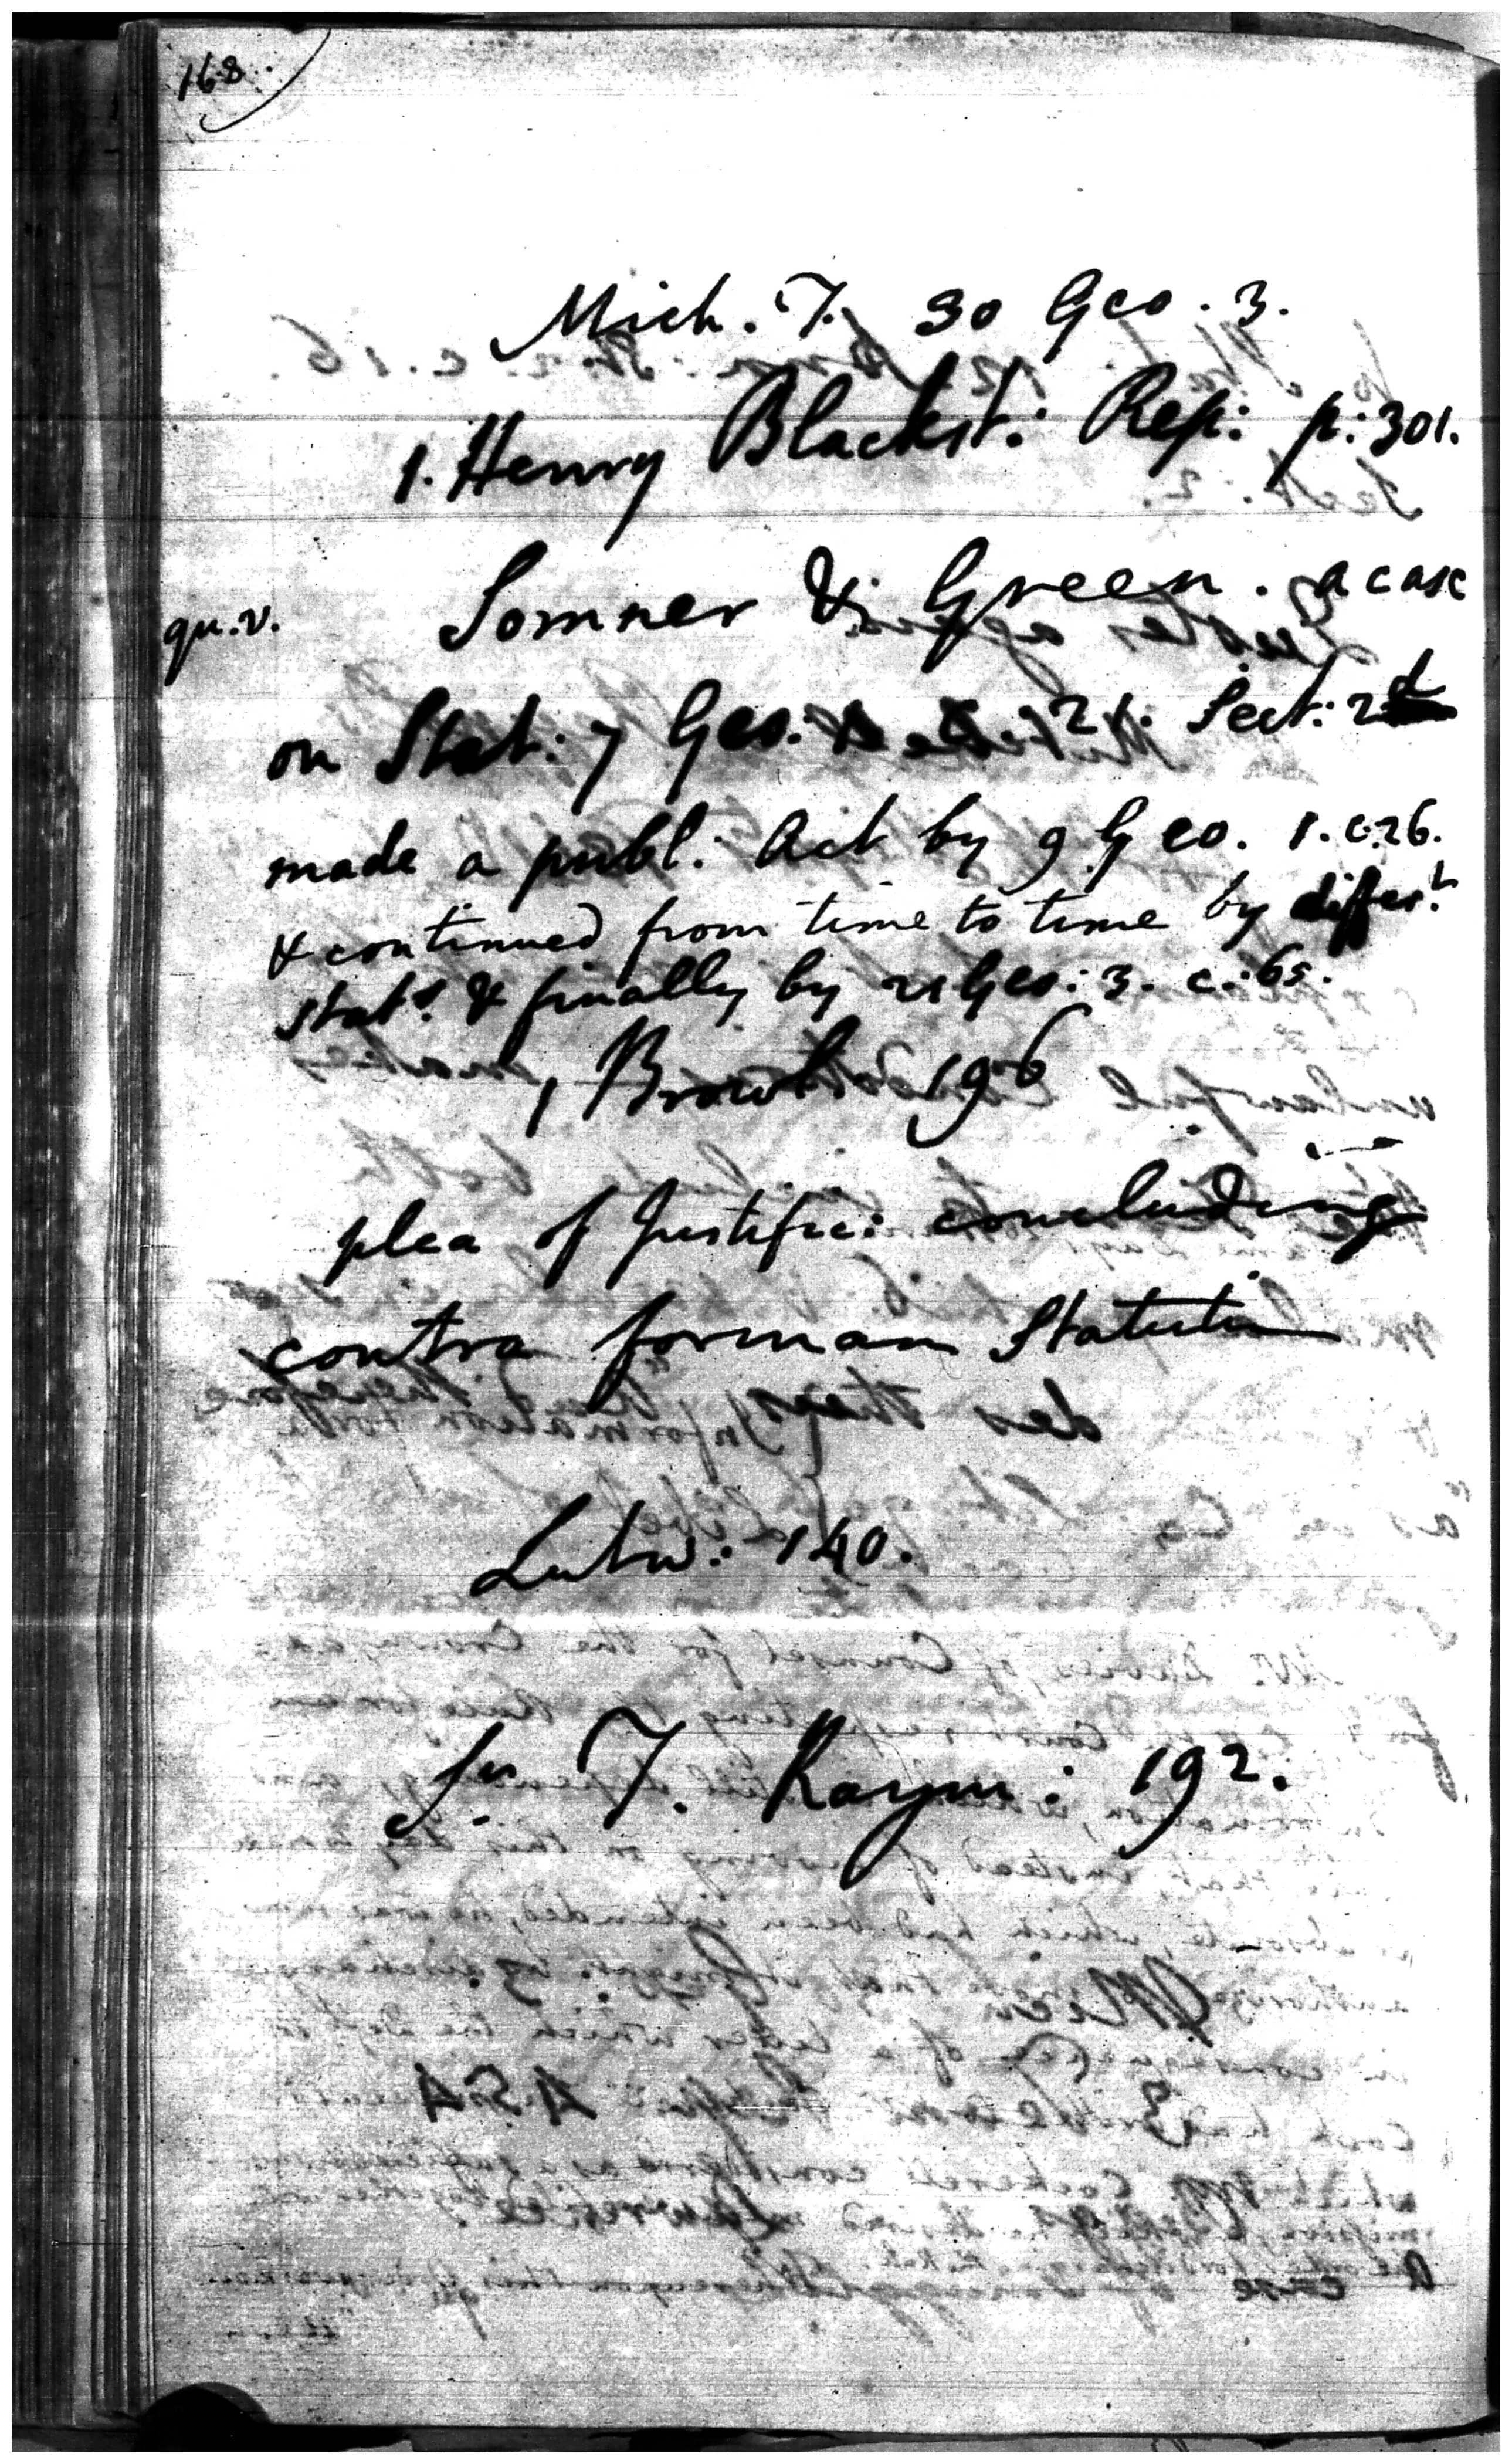 168
Mich. T. 30 Geo. 3.
1. Henry Blackst: Rep: p: 301.
qu.v. Somner & Green. a case
on Stat: 7 Geo: 1. 21. Sect: 2d
made a publ: Act by 9 Geo. 1. c.26.
& continued from time to time by differt
stats. & finally by 21 Geo: 3. c: 65.
1 Brownl: 196
plea of Justific: concluding
contra formam Statuti
Lutw: 140.
Sr T. Raym: 192.